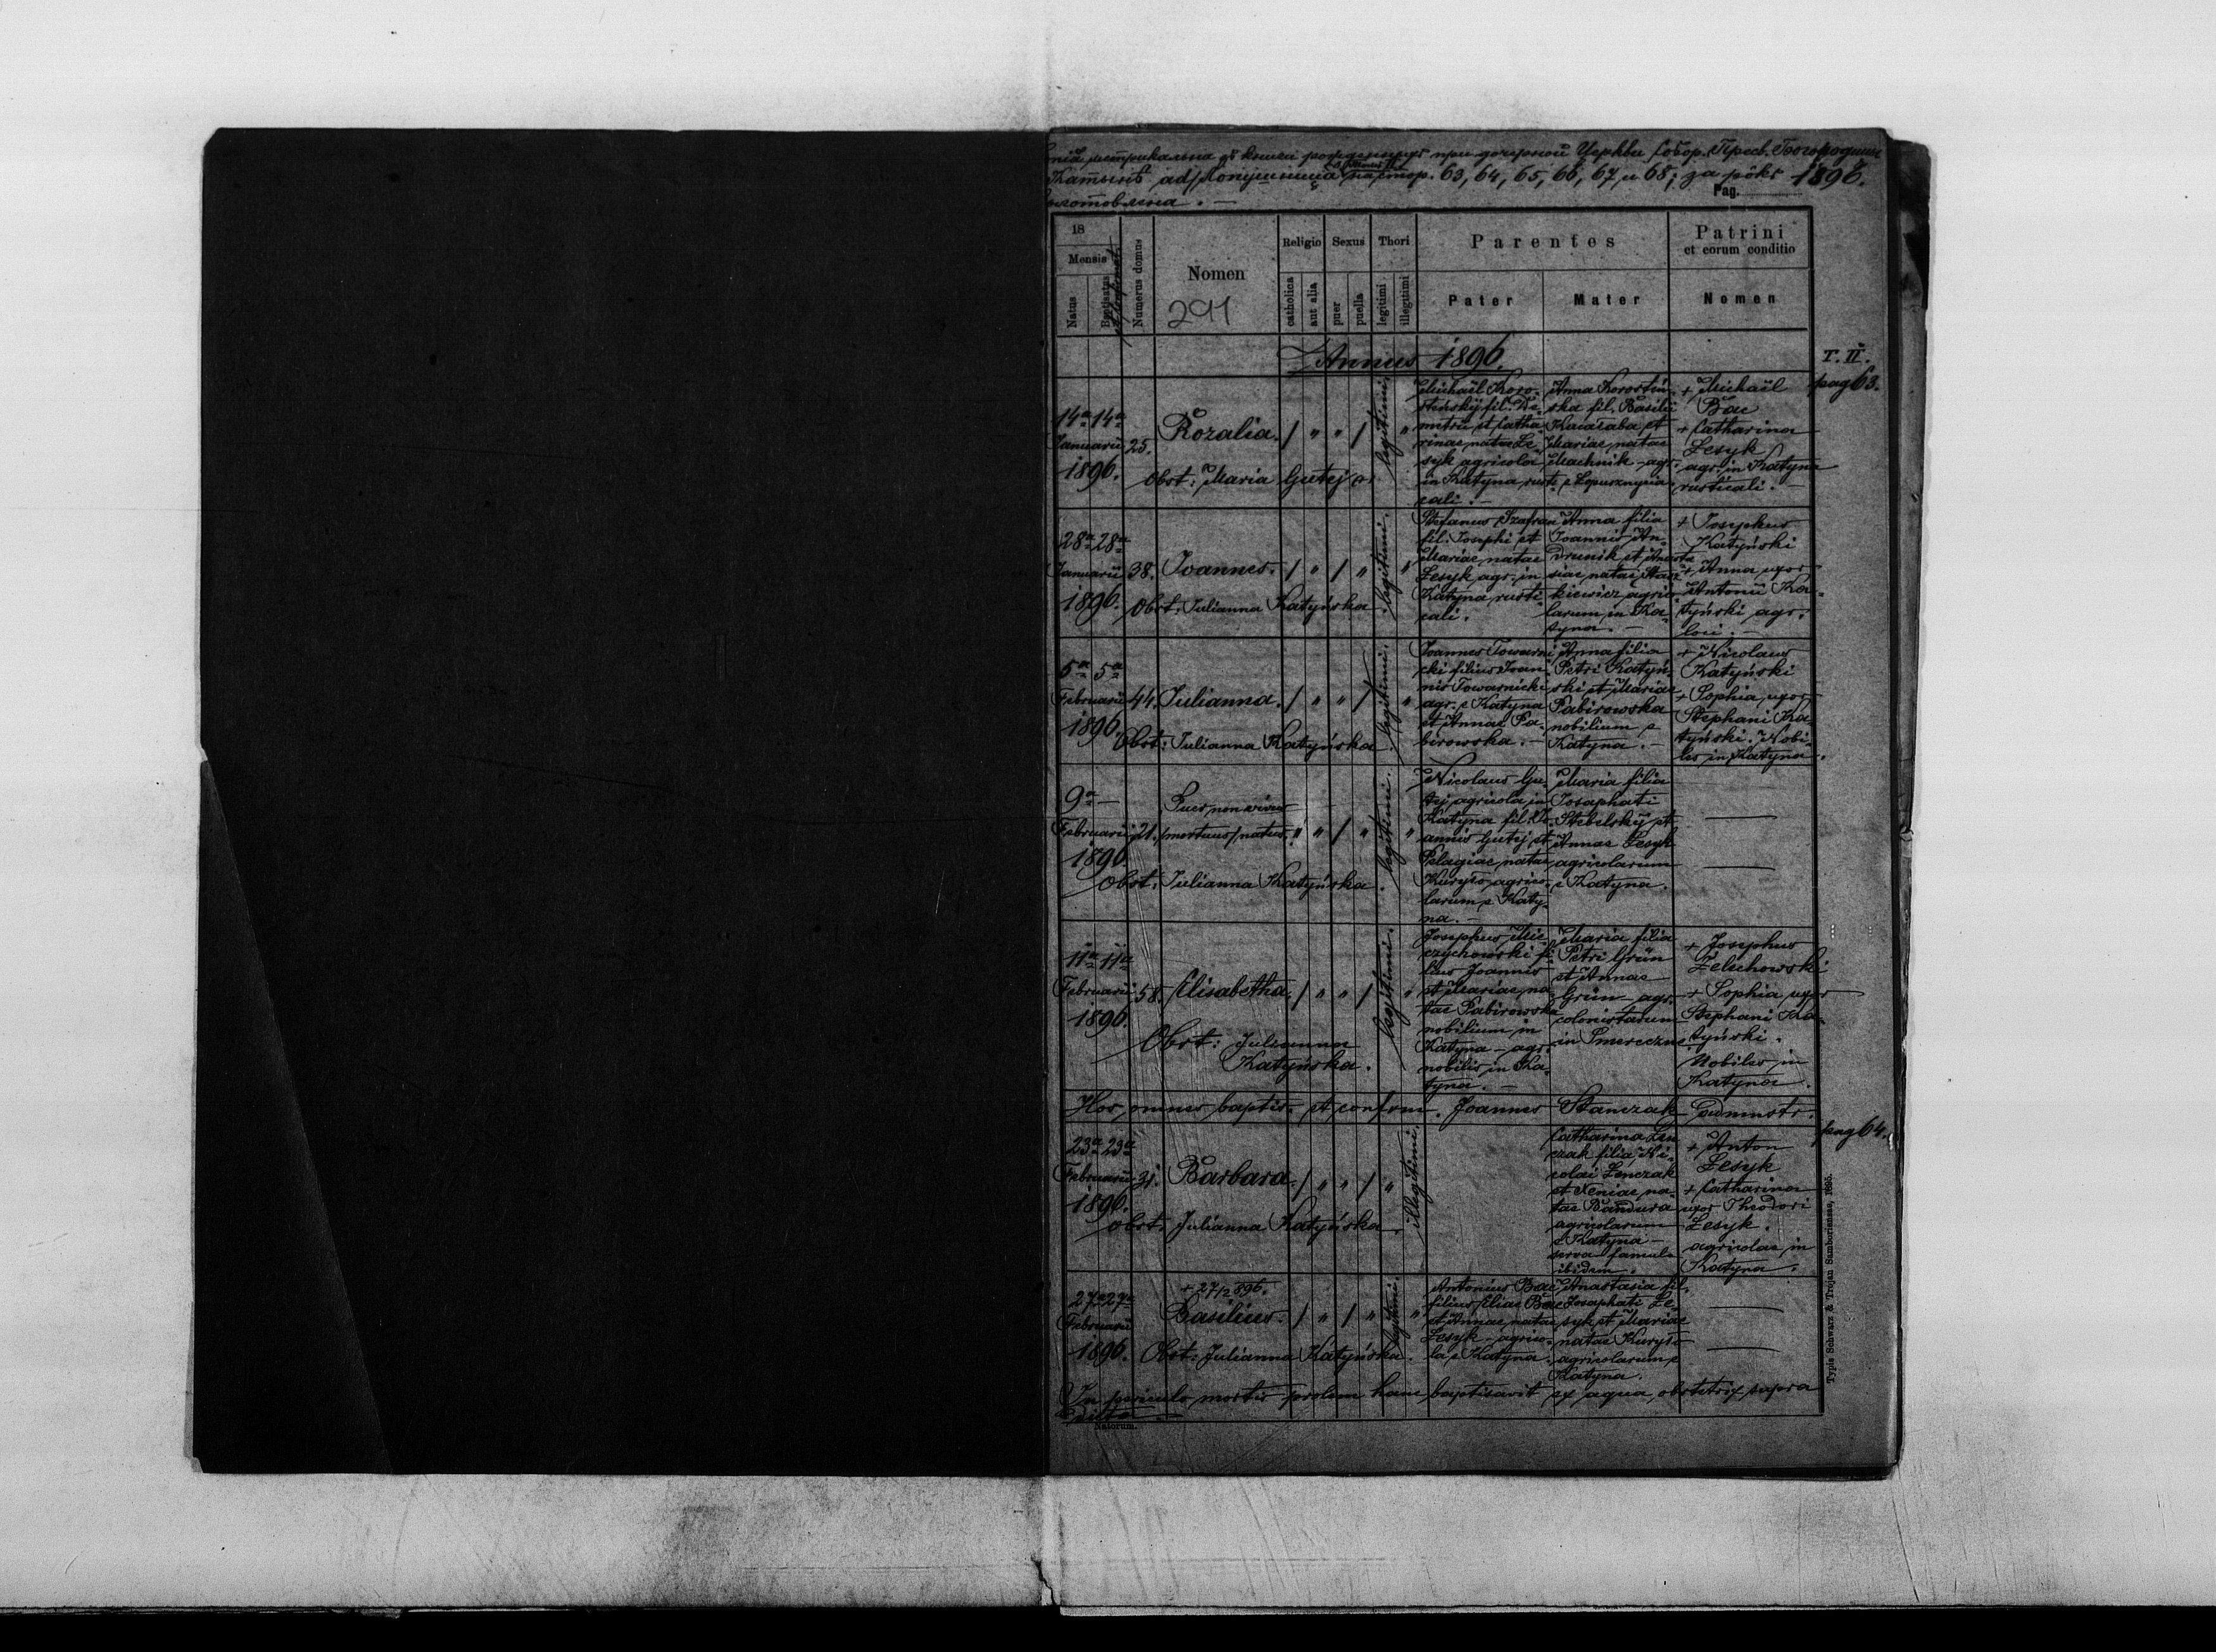 метрикальна до книги рожденныхъ при дочерной Церкви Собор. Пресв. Богородицы
ad Лопушниця Томъ II на стор. 63, 64, 65, 66, 67, и 68; за рôкъ 1896.
Pag.
18
Mensis
Natus
Baptisatus
et confirmat.
Numerus domus
Nomen
291
Religio
catholica
aut alia
Sexus
puer
puella
Thori
legitimi
illegitimi
Parentes
Pater
Mater
Patrini
et eorum conditio
Nomen
Annus 1896.
T. II.
pag 63.
14a 14a
Januarii
1896.
25.
Rozalia.
/ " " / legitimi. "
Obst: Maria Gutej
Michaël Koro-
steński fil. De-
metrii et Catha-
rinae natae Le-
syk agricola
in Katyna rusti-
cali. –
Anna Korosteń-
ska fil. Basilii
Kaczaba et
Mariae natae
Machnik – agr.
e Lopusznycia.
+ Michaël
Bac
+ Catharina
Lesyk
agr. in Katyna
rusticali. –
28a 28a
Januarii
1896.
38.
Joannes.
/ " / " legitimi. "
Obst: Julianna Katyńska
Stefanus Szafran
fil. Josephi et
Mariae natae
Lesyk agr. in
Katyna rusti-
cali.
Anna filia
Joannis An-
drunik et Anasta-
siae natae
agrico-
larum in Ka-
tyna. –
+ Josephus
Katyński
+ Anna uxor
Antonii Ka-
tyński agr.
loci. –
5a 5a
Februarii
1896.
44.
Julianna.
/ " " / legitimi. "
Obst: Julianna Katyńska
Joannes Towarni-
cki filius Joan-
nis Towarnicki
agr. e Katyna
et Annae Pa-
birowska. –
Anna filia
Petri Katyń-
ski et Mariae
Pabirowska
nobilium e
Katyna. –
+ Nicolaus
Katyński
+ Sophia uxor
Stephani Ka-
tyński. Nobi-
les in Katyna.
9a –
Februarii
1896.
21.
Puer non vivus
/mortuus/ natus.
" " / " legitimi. "
Obst: Julianna Katyńska.
Nicolaus Gu-
tej agricola in
Katyna fil. Jo-
annis Gutej et
Pelagiae natae
Kuryło agrico-
larum e Katy-
na. –
Maria filia
Josaphati
Stebelský et
Annae Lesyk
agricolarum
e Katyna.
11a 11a
Februarii
1896.
58.
Elisabetha.
/ " " / legitimi. "
Obst: Julianna
Katyńska.
Josephus Mie-
czychowski fi-
lius Joannis
et Mariae na-
tae Pabirowska
nobilium in
Katyna – agr.
nobilis in Ka-
tyna. –
Maria filia
Petri Grün
et Annae
Grün – agr.
colonistarum
in Smereczna
+ Josephus
Zeluchowski
+ Sophia uxor
Stephani Ka-
tyński.
Nobiles in
Katyna.
Hos omnes baptis. et confirm. Joannes Stanczak admnstr.
pag 64.
23a 23a
Februarii
1896.
31.
Barbara.
/ " " / " illegitimi.
Obst: Julianna Katyńska.
Catharina Len-
czak filia Ni-
colai Lenczak
et Xeniae na-
tae Bandura
agricolarum
e Katyna –
serva famula
ibidem.
+ Anton
Lesyk
+ Catharina
uxor Theodori
Lesyk.
agricolae in
Katyna.
27a 27a
Februarii
1896.
+ 27/2 896.
Basilius.
/ " / " legitimi. "
Obst: Julianna Katyńska.
Antonius Bac
filius Eliae Bac
et Annae natae
Lesyk – agrico-
la e Katyna.
Anastasia fil.
Josaphati Le-
syk et Mariae
natae Kuryło
agricolarum e
Katyna.
In periculo mortis prolem hanc baptisavit ex aqua, obstetrix supra
dicta
Natorum.
Typis Schwarz & Trojan Samboriensse, 1895.